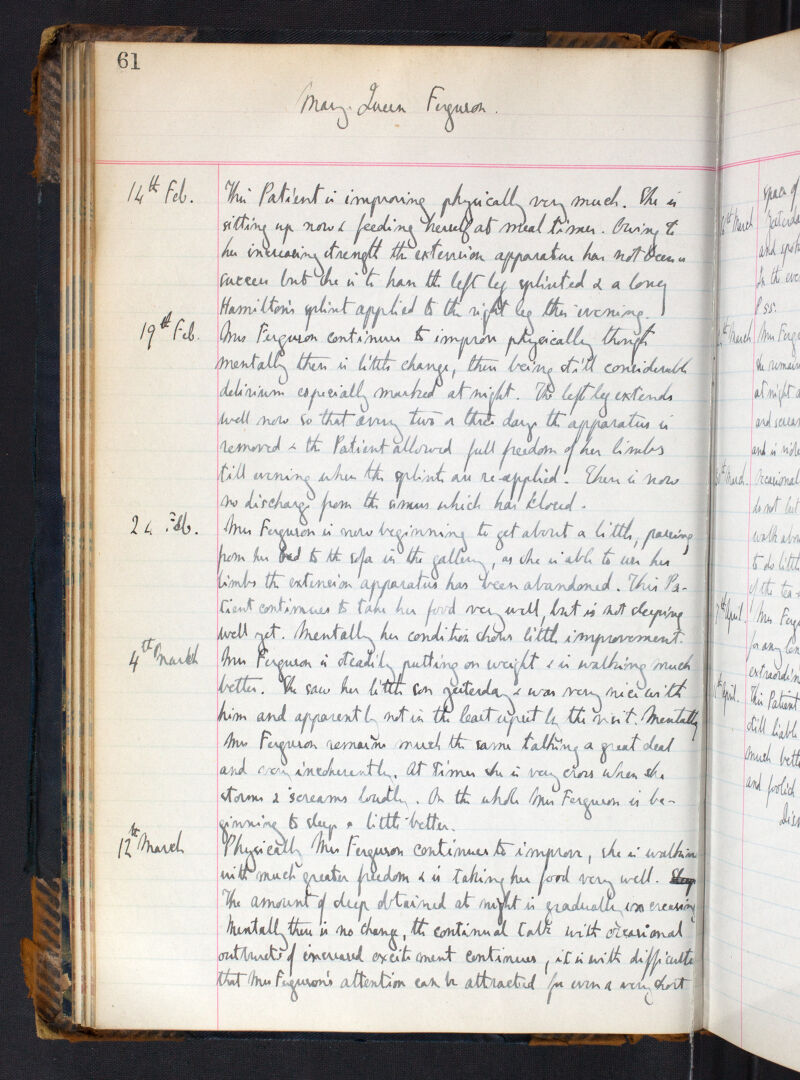 61
Mary Queen Ferguson.
14th Feb. This Patient is improving physically very much. She is
sitting up now & feeding herself at meal times. Owing to
her increasing strength the extension apparatus has not been a
success but she is to have the left leg splinted & a long
Hamilton's splint applied to the right leg this evening.
19th Feb. Mrs Ferguson continues to improve physically though
mentally there is little change, there being still considerable
delirium especially marked at night. The left leg extends
well now so that every two or three days the apparatus is
removed & the Patient allowed full freedom of her limbs
till evening when the splints are re-applied. There is now
no discharge from the sinus which has closed.
24 Feb. Mrs Ferguson is now beginning to get about a little, passing
from her bed to the sofa in the gallery, as she is able to use her
limbs the extension apparatus has been abandoned. This Pa-
tient continues to take her food very well, but is not sleeping
well yet. Mentally her condition shows little improvement.
4th March Mrs Ferguson is steadily putting on weight & is walking much
better. She saw her little son yesterday & was very nice with
him and apparently not in the least upset by the visit. Mentally
Mrs Ferguson remains much the same talking a great deal
and very incoherently. At times she is very cross when she
storms & screams loudly. On the whole Mrs Ferguson is be-
ginning to sleep a little better.
12th March Physically Mrs Ferguson continues to improve, she is walking
with much greater freedom & is taking her food very well.
The amount of sleep obtained at night is gradually increasing
Mentally there is no change, the continual talk with occasional
outbursts of increased excitement continues, it is with difficulty
that Mrs Ferguson's attention can be attracted for even a very short
space of
March
and
In the
P.SS.
March Mrs
she remain
at night
and
and is
March. occasional
do not
walk
to do little
of the tea
April. Mrs
for any
extraordin
April. This Patient
still liable
much
and foolish